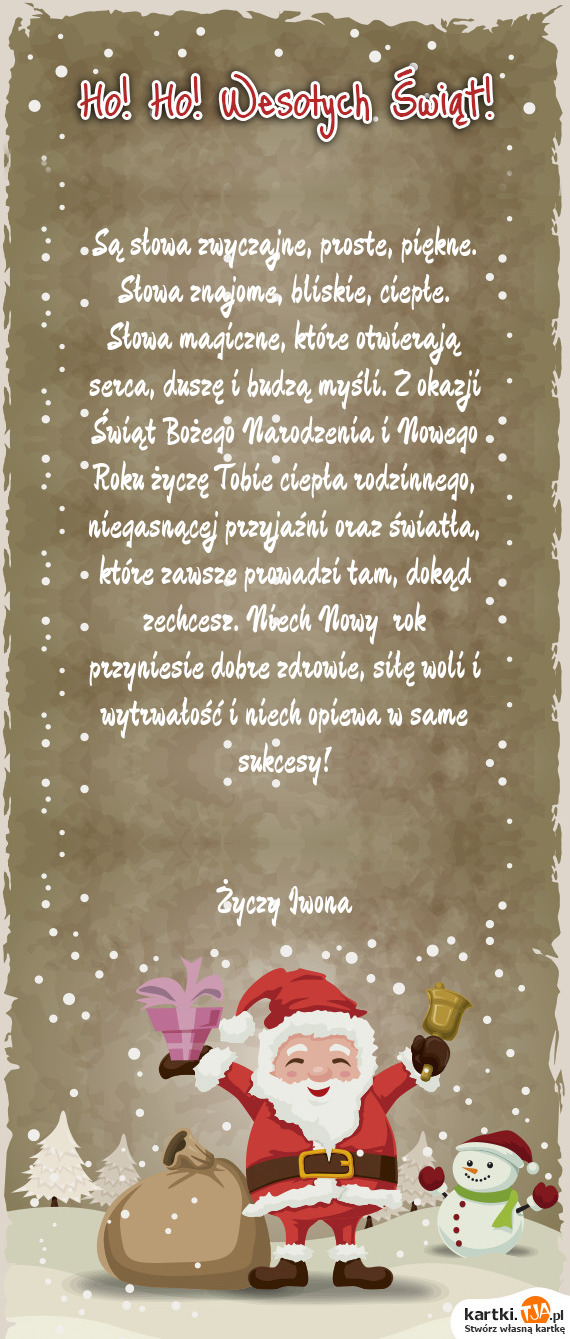 Ho! Ho! Wesołych Świąt!
Są słowa zwyczajne, proste, piękne.
Słowa znajome, bliskie, ciepłe.
Słowa magiczne, które otwierają
serca, duszę i budzą myśli. Z okazji
Świąt Bożego Narodzenia i Nowego
Roku życzę Tobie ciepła rodzinnego,
niegasnącej przyjaźni oraz światła,
które zawsze prowadzi tam, dokąd
zechcesz. Niech Nowy rok
przyniesie dobre zdrowie, siłę woli i
wytrwałość i niech opiewa w same
sukcesy!
Życzy Iwona
kartki.TJA.pl
Stwórz własną kartkę